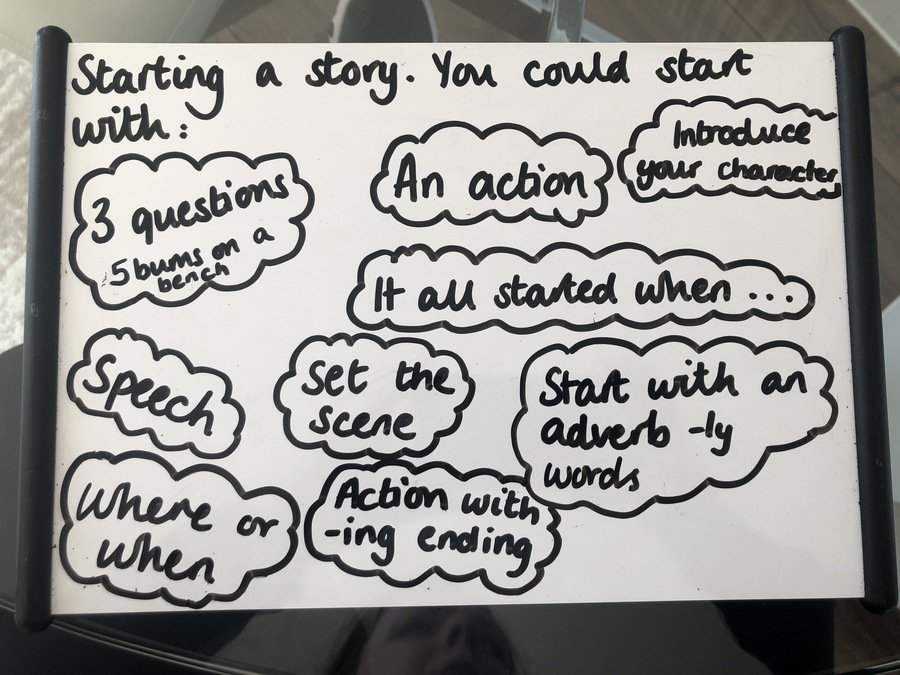 Starting a story. You could start
with:
3 questions
5 bums on a
bench
An action
Introduce
your character
It all started when ...
Speech
Set the
scene
Start with an
adverb -ly
words
Where or
when
Action with
-ing ending